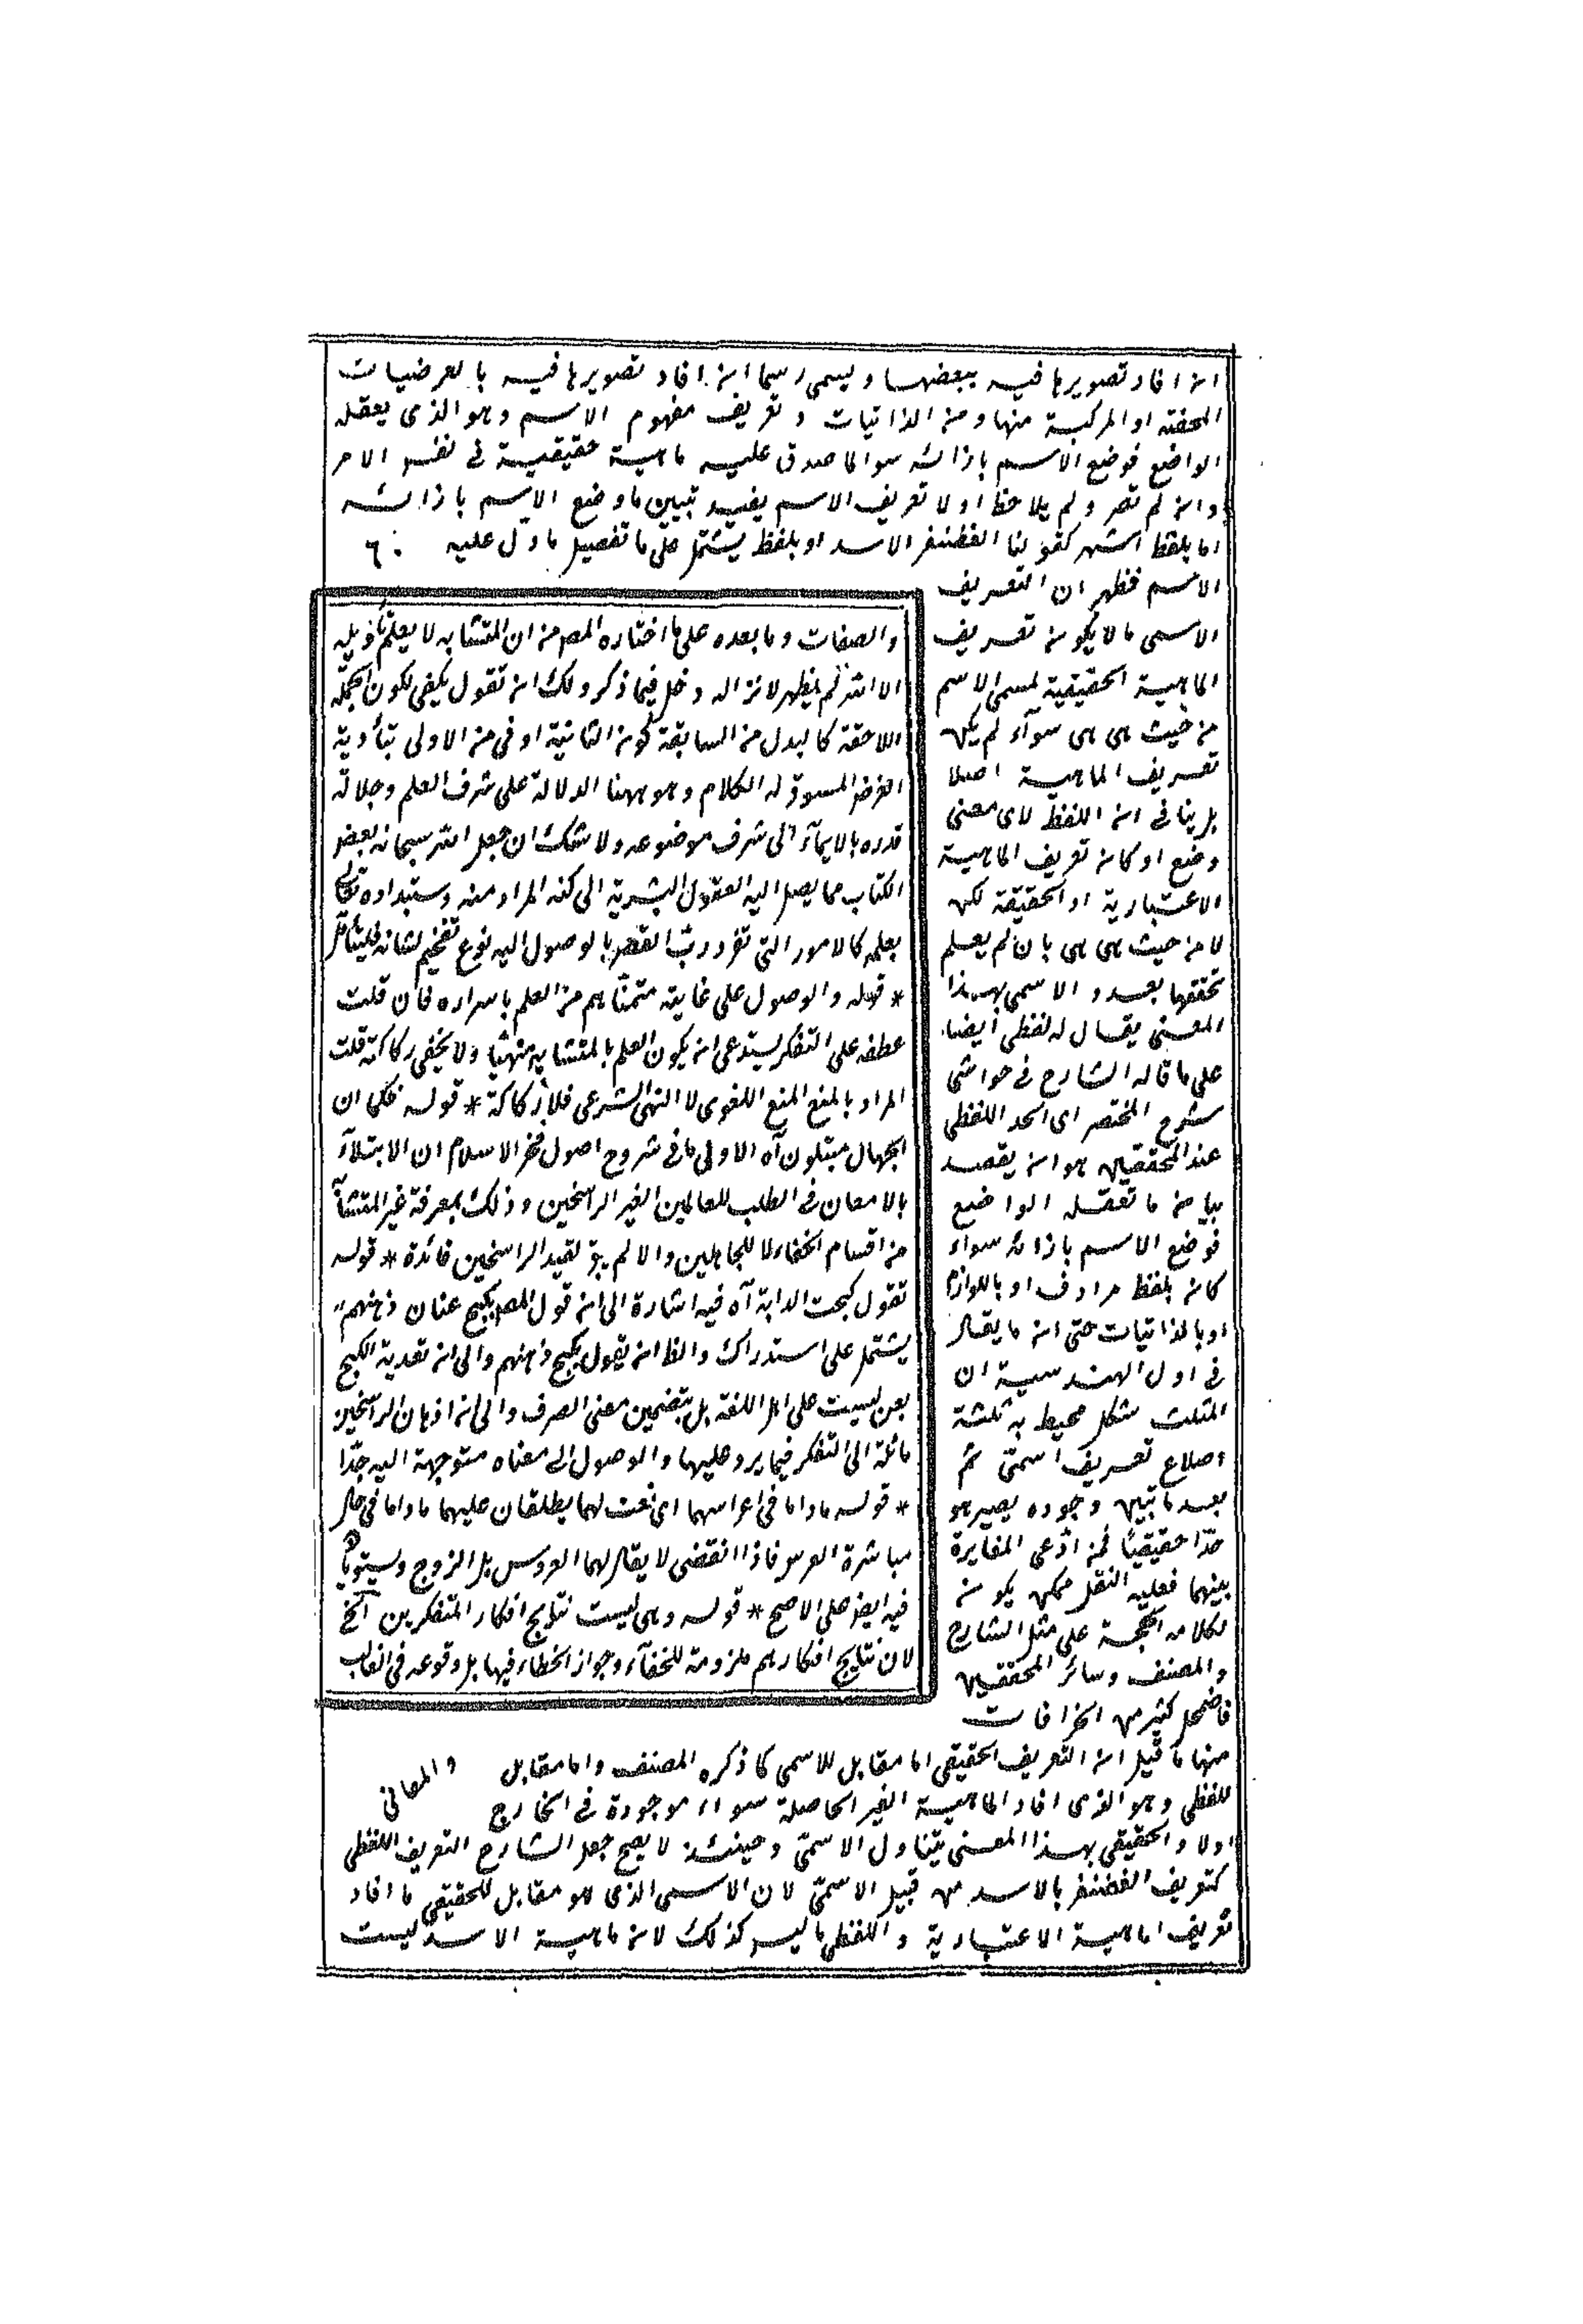 ان افاد تصويرها فيه ببعضها ويسمى رسما ان افاد تصويرها فيه بالعرضيات
المحضة او المركبة منها ومن الذاتيات وتعريف مفهوم الاسم وهو الذى يعقله
الواضع فوضع الاسم بازائه سواء صدق عليه ماهية حقيقية فى نفس الامر
وان لم تصر ولم يلاحظ اولا تعريف الاسم يفيد تبيين ما وضع الاسم بازائه
اما بلفظ اشهر كقولنا الغضنفر الاسد او بلفظ يشتمل على ما تفصيل ما دل عليه
الاسم فظهر ان التعريف
الاسمى ما لا يكون تعريف
الماهية الحقيقية لمسمى الاسم
من حيث هى هى سوآء لم يكن
تعريف الماهية اصلا
بل بيانا فى ان اللفظ لاى معنى
وضع او كان تعريف الماهية
الاعتبارية او الحقيقة لكن
لا من حيث هى هى بان لم يعلم
تحققها بعد والاسمى بهذا
المعنى يقال له لفظى ايضا
على ما قاله الشارح فى حواشى
شرح المختصر اى الحد اللفظى
عند المحققين هو ان يقصد
بيان ما تعقله الواضع
فوضع الاسم بازائه سواء
كان بلفظ مرادف او باللوازم
او بالذاتيات حتى ان ما يقال
فى اول الهندسية ان
المثلث شكل محيط به ثلثة
اضلاع تعريف اسمىّ ثم
بعد ما تبين وجوده يصير هو
حدّا حقيقيّا فمن ادّعى المغايرة
بينهما فعليه النقل ممن يكون
لكلامه الحجة على مثل الشارح
والمصنف وسائر المحققين
فاضمحل كثير من الخرافات
منها ما قيل ان التعريف الحقيقى اما مقابل للاسمى كما ذكره المصنف واما مقابل
للفظى وهو الذى افاد الماهية الغير الحاصلة سواء موجودة فى الخارج
اولا والحقيقى بهذا المعنى يتناول الاسمىّ وحينئذ لا يصح جعل الشارح التعريف اللفظى
كتعريف الغضنفر بالاسد من قبيل الاسمىّ لان الاسمى الذى هو مقابل للحقيقى ما افاد
تعريف الماهية الاعتبارية واللفظى ما ليس كذلك لان ماهية الاسد ليست
والصفات وما بعده على ما اختاره المص من ان المتشابه لا يعلم تأويله
الا الله لم يظهر لانزاله دخل فيما ذكر ولك ان تقول يكفى لكون الجملة
اللاحقة كالبدل من السابقة كون الثانية اوفى من الاولى بتأدية
الغرض المسوق له الكلام وهو ههنا الدلالة على شرف العلم وجلالة
قدره بالايمآء الى شرف موضوعه ولا شك ان جعل الله سبحانه بعض
الكتاب مما يصل اليه العقول البشرية الى كنه المراد منه واستبداده تعالى
بعلمه كالامور التى تفرد ربّ القصر بالوصول اليه نوع تفخيم لشانه فليتأمل
* قوله والوصول على غاية متمنّاهم من العلم باسراره فان قلت
عطفه على التفكر يستدعى ان يكون العلم بالمتشابه منهيّا ولا يخفى ركاكته قلت
المراد بالمنع المنع اللغوى لا النهى الشرعى فلا ركاكة * قوله فكما ان
الجهال مبتلون آه الاولى ما فى شروح اصول فخر الاسلام ان الابتلآء
بالامعان فى الطلب للعالمين الغير الراسخين وذلك بمعرفة غير المتشابه
من اقسام الخفاء لا للجاهلين والا لم يبق لقيد الراسخين فائدة * قوله
تقول كبحت الدابة آه فيه اشارة الى ان قول المص يكبح عنان ذهنهم
يشتمل على استدراك والظ ان يقول يكبح ذهنهم والى ان تعدية الكبح
بعن ليست على اهل اللغة بل بتضمين معنى الصرف والى ان اذهان الراسخين
مائلة الى التفكر فيما يرد عليها والوصول الى معناه متوجهة اليه جدّا
* قوله ما داما فى اعراسهما اى نعت لهما يطلقان عليهما ما داما فى حال
مباشرة العرس فاذا انقضى لا يقال لهما العروس بل الزوج ويستويان
فيه ايض على الاصح * قوله وهى ليست نتايج افكار المتفكرين الخ
لان نتايج افكارهم ملزومة للخفآء وجواز الخطاء فيها بل وقوعه فى الغالب
والمعانى